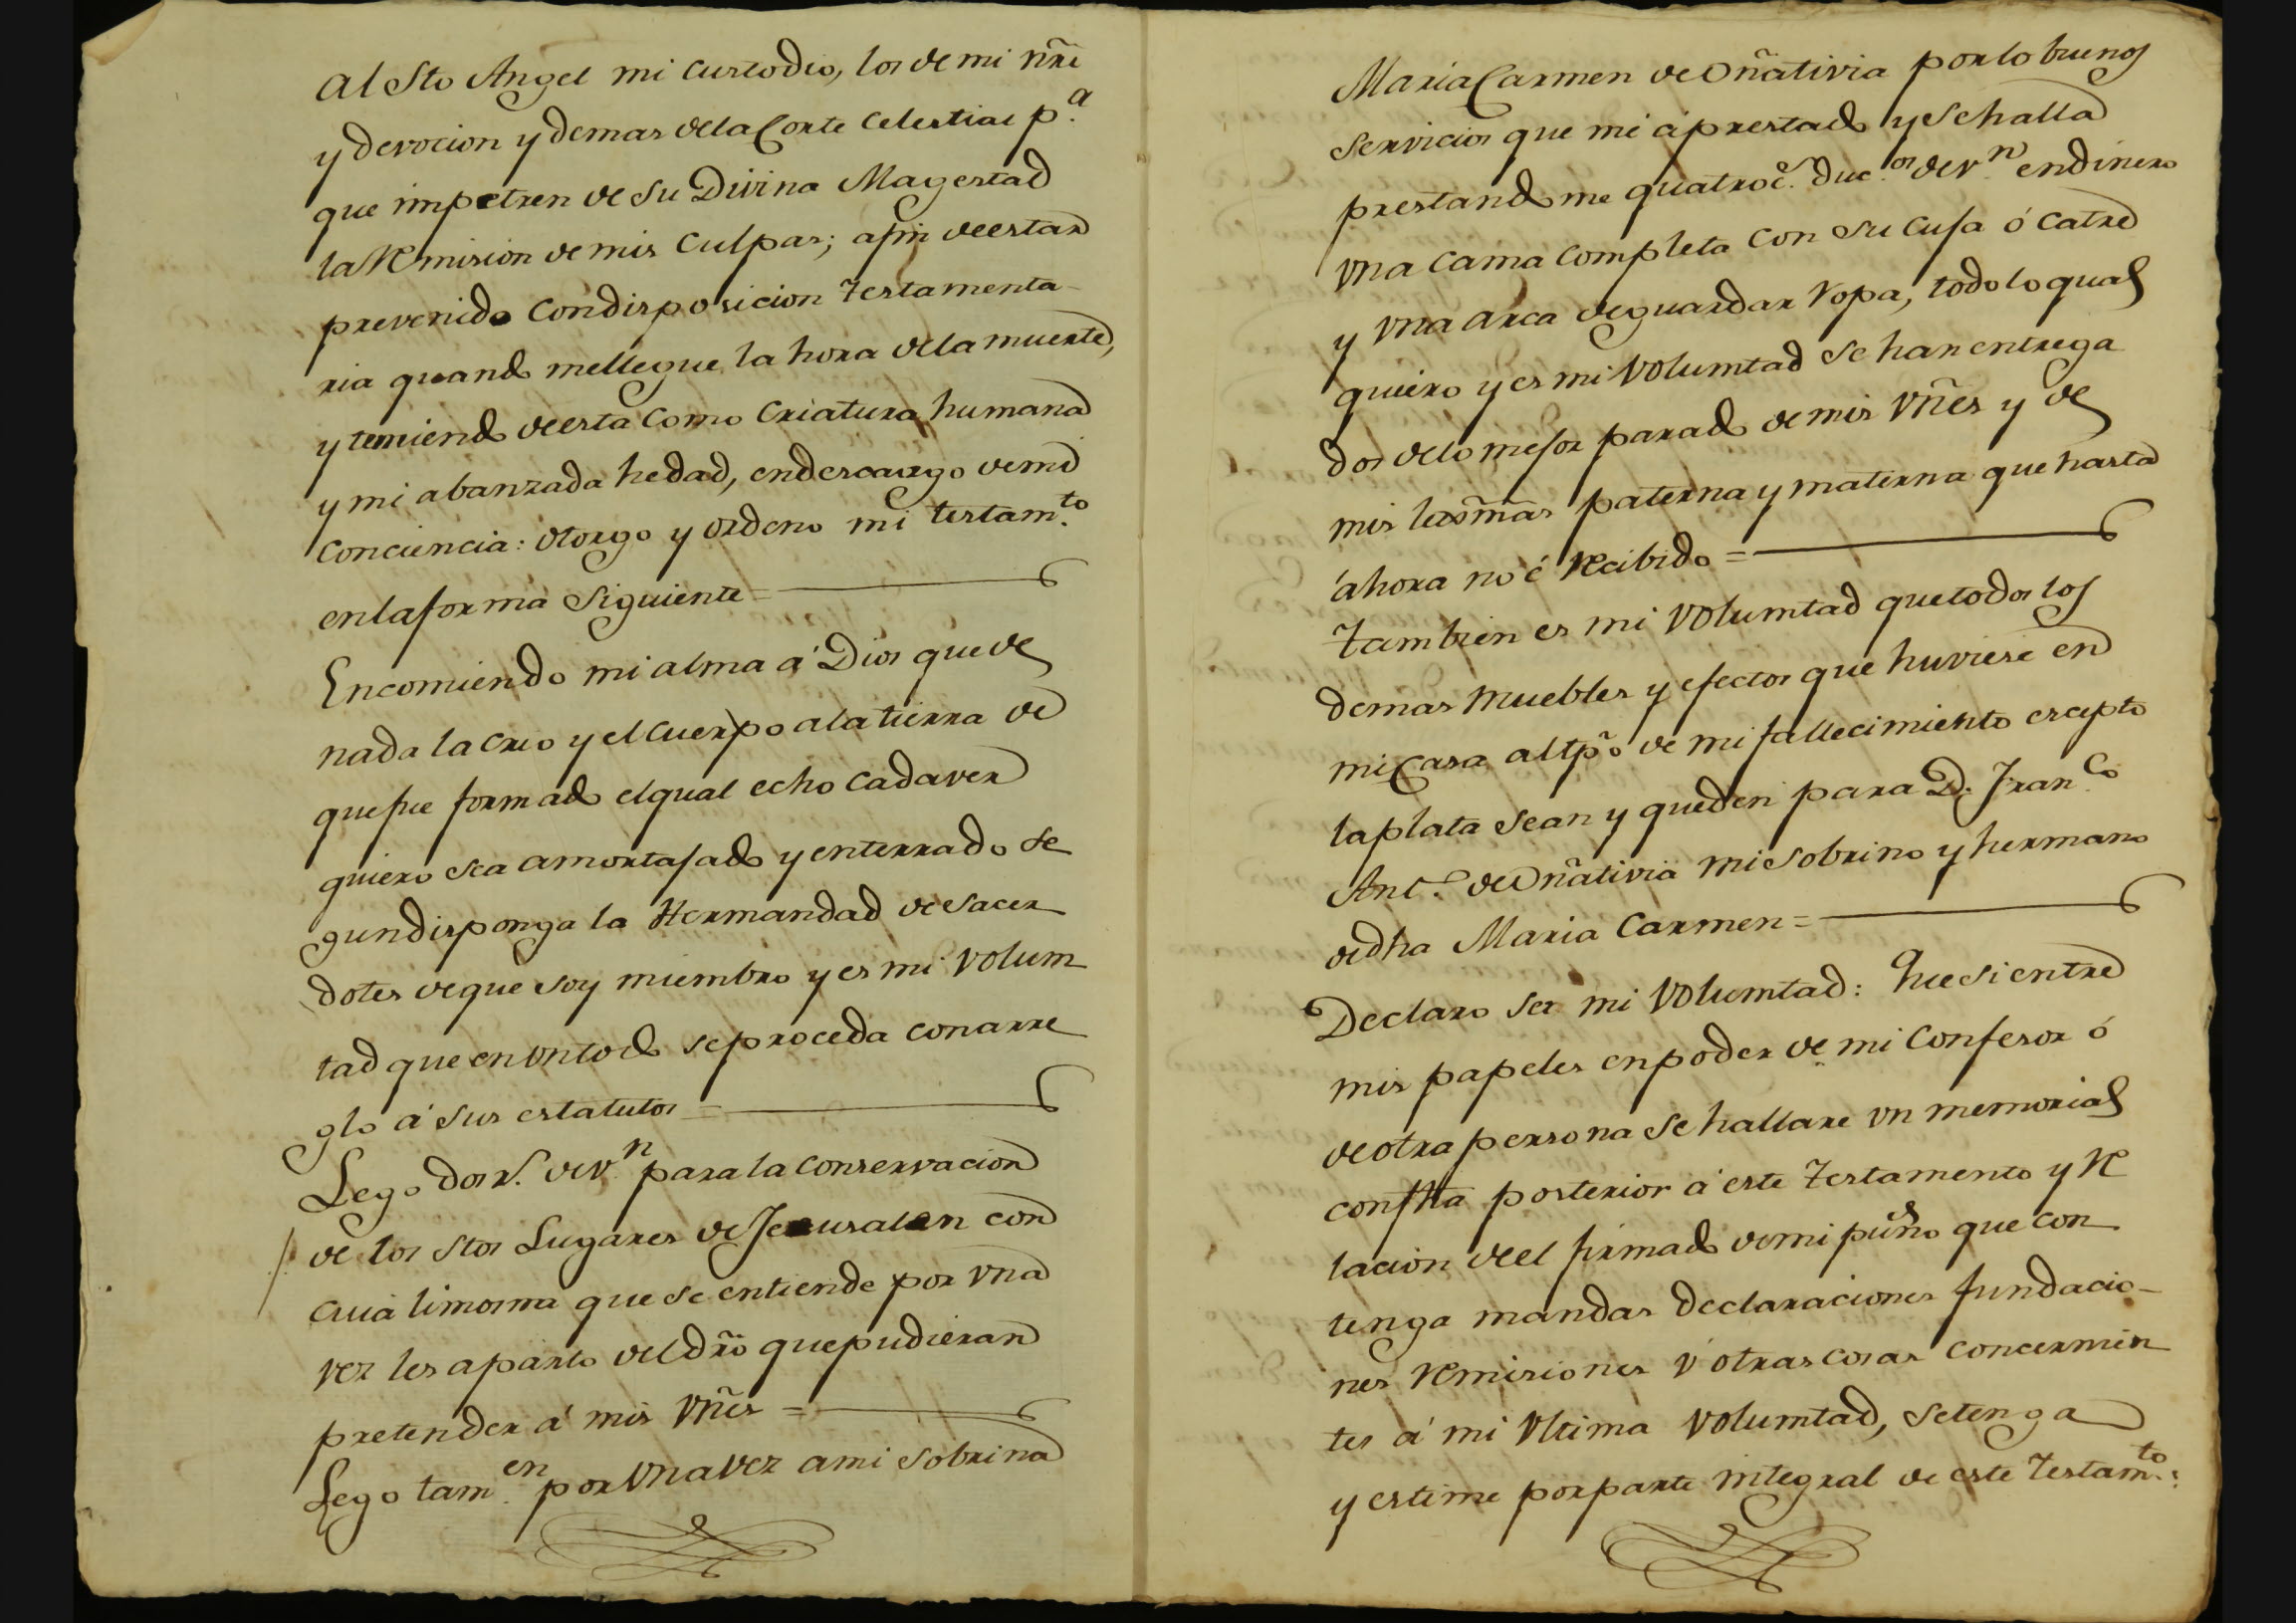 al Sto Angel mi Custodio, los de mi nre
y devocion y demas de la Corte Celestial p.ª
que impetren de su Divina Magestad
la Remision de mis Culpas; afin de estar
prevenido Con disposicion Testamenta-
ria quando me llegue la hora de la muerte,
y temiendo de esta Como Criatura humana
y mi abanzada hedad, en descargo de mi
Conciencia: otorgo y ordeno mi testam.to
en la forma Siguiente =
Encomiendo mi alma á Dios que de
nada la crio y el Cuerpo a la tierra de
que fue formado el qual echo Cadaver
quiero sea amortajado y enterrado se
gun disponga la Hermandad de Sacer
dotes de que soy miembro y es mi Volum
tad que en un todo se proceda con arre
glo á sus estatutos =
Lego dos r.s de v.n para la Conservacion
de los Stos Lugares de Jerusalen con
cuia limosna que se entiende por una
vez les aparto del dro que pudieran
pretender á mis Vñes =
Lego tam.en por una vez a mi Sobrina
Maria Carmen de Oñativia por lo buenos
Servicios que mi á prestado y se halla
prestandome quatroc.s duc.os de v.n en dinero
una cama completa Con su Cuja ó Catre
y una arca de guardar Ropa, todo lo qual
quiero y es mi Volumtad se han entrega
dos de lo mejor parado de mis Vñes y de
mis lexmas paterna y materna que hasta
ahora no é Recibido =
Tambien es mi Volumtad que todos los
demas Muebles y efectos que huviese en
mi Casa al tpo de mi fallecimiento escepto
la plata sean y queden para D. Fran.co
Ant.o de Oñativia mi Sobrino y hermano
de dha Maria Carmen =
Declaro ser mi Volumtad: Que si entre
mis papeles en poder de mi Confesor ó
de otra persona se hallare un memorial
con fha posterior á este Testamento y Re
lacion de el firmado de mi puño que con
tenga mandas declaraciones fundacio-
nes Remisiones ú otras cosas Concernien
tes á mi Ultima Volumtad, se tenga
y estime por parte integral de este Testam.to: